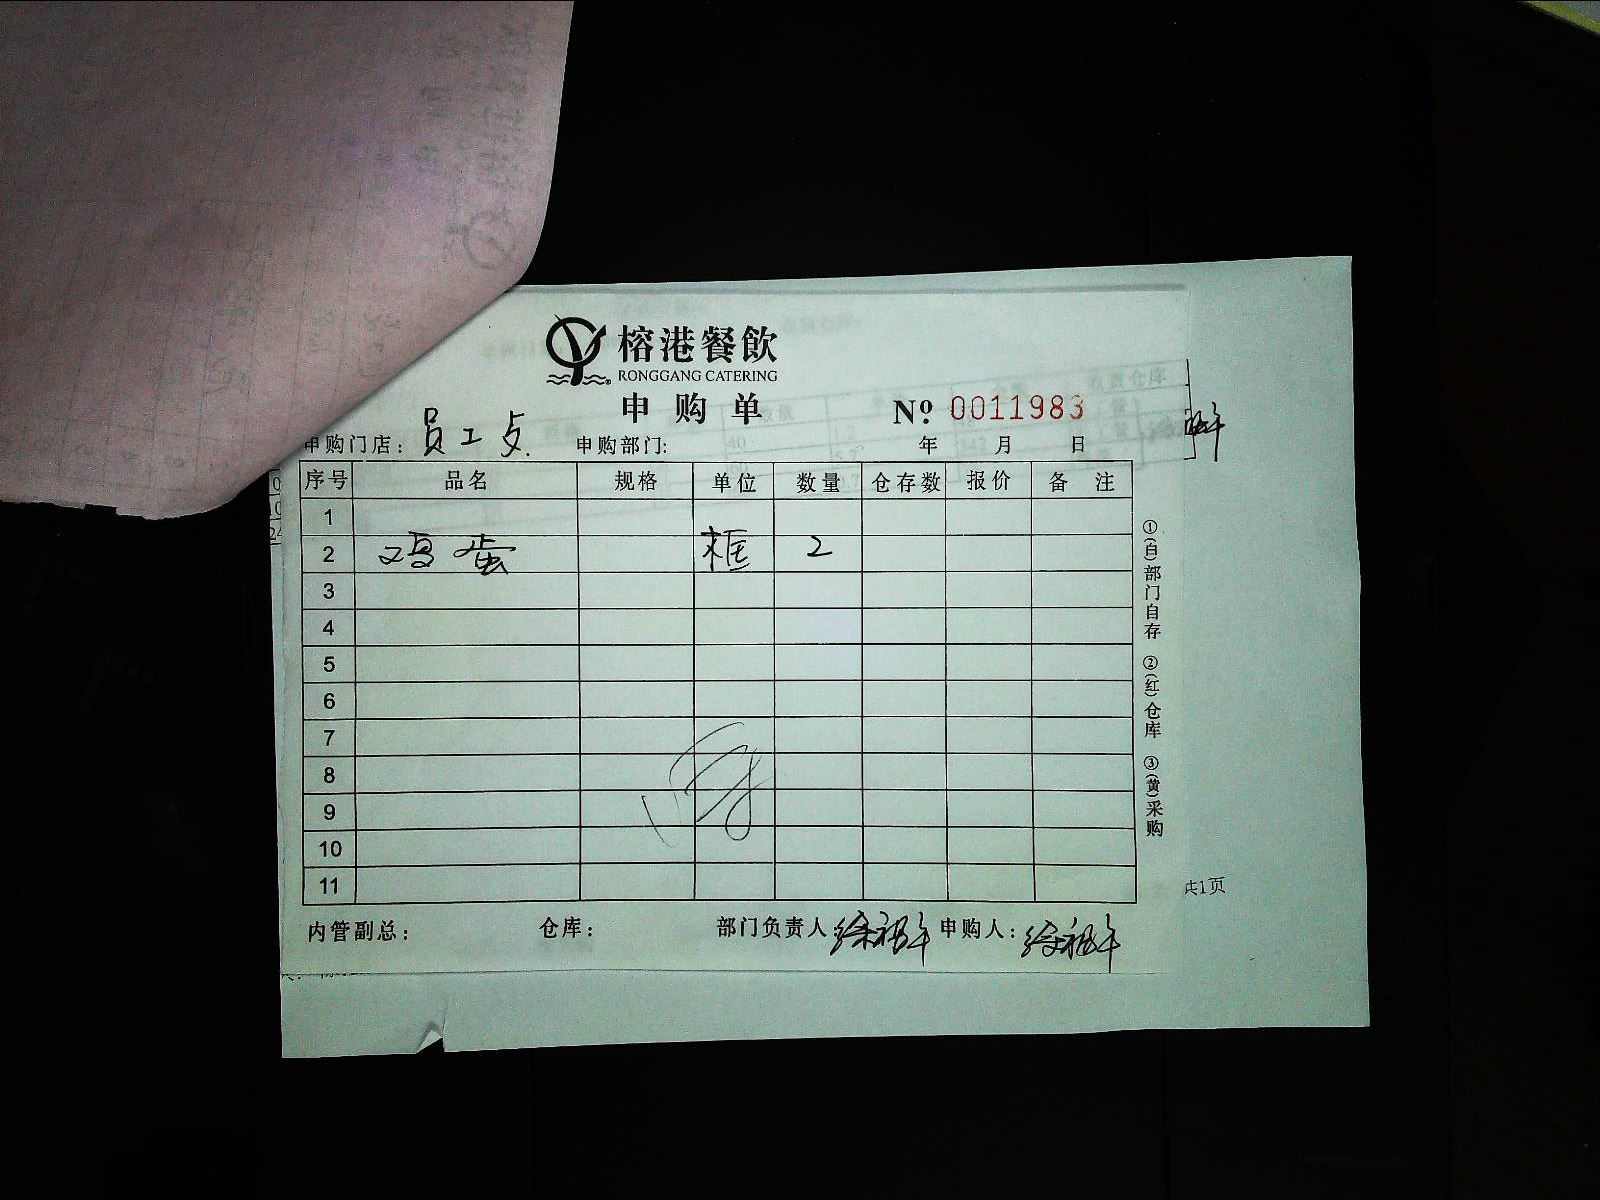 榕港餐飲
RONGGANG CATERING
申购单
№ 0011983
申购门店: 员工 申购部门: 年 月 日
序号 品名 规格 单位 数量 仓存数 报价 备注
1
2 鸡蛋 框 2
3
4
5
6
7
8
9
10
11
内管副总: 仓库: 部门负责人: 申购人:
①(白)部门自存 ②(红)仓库 ③(黄)采购
共1页